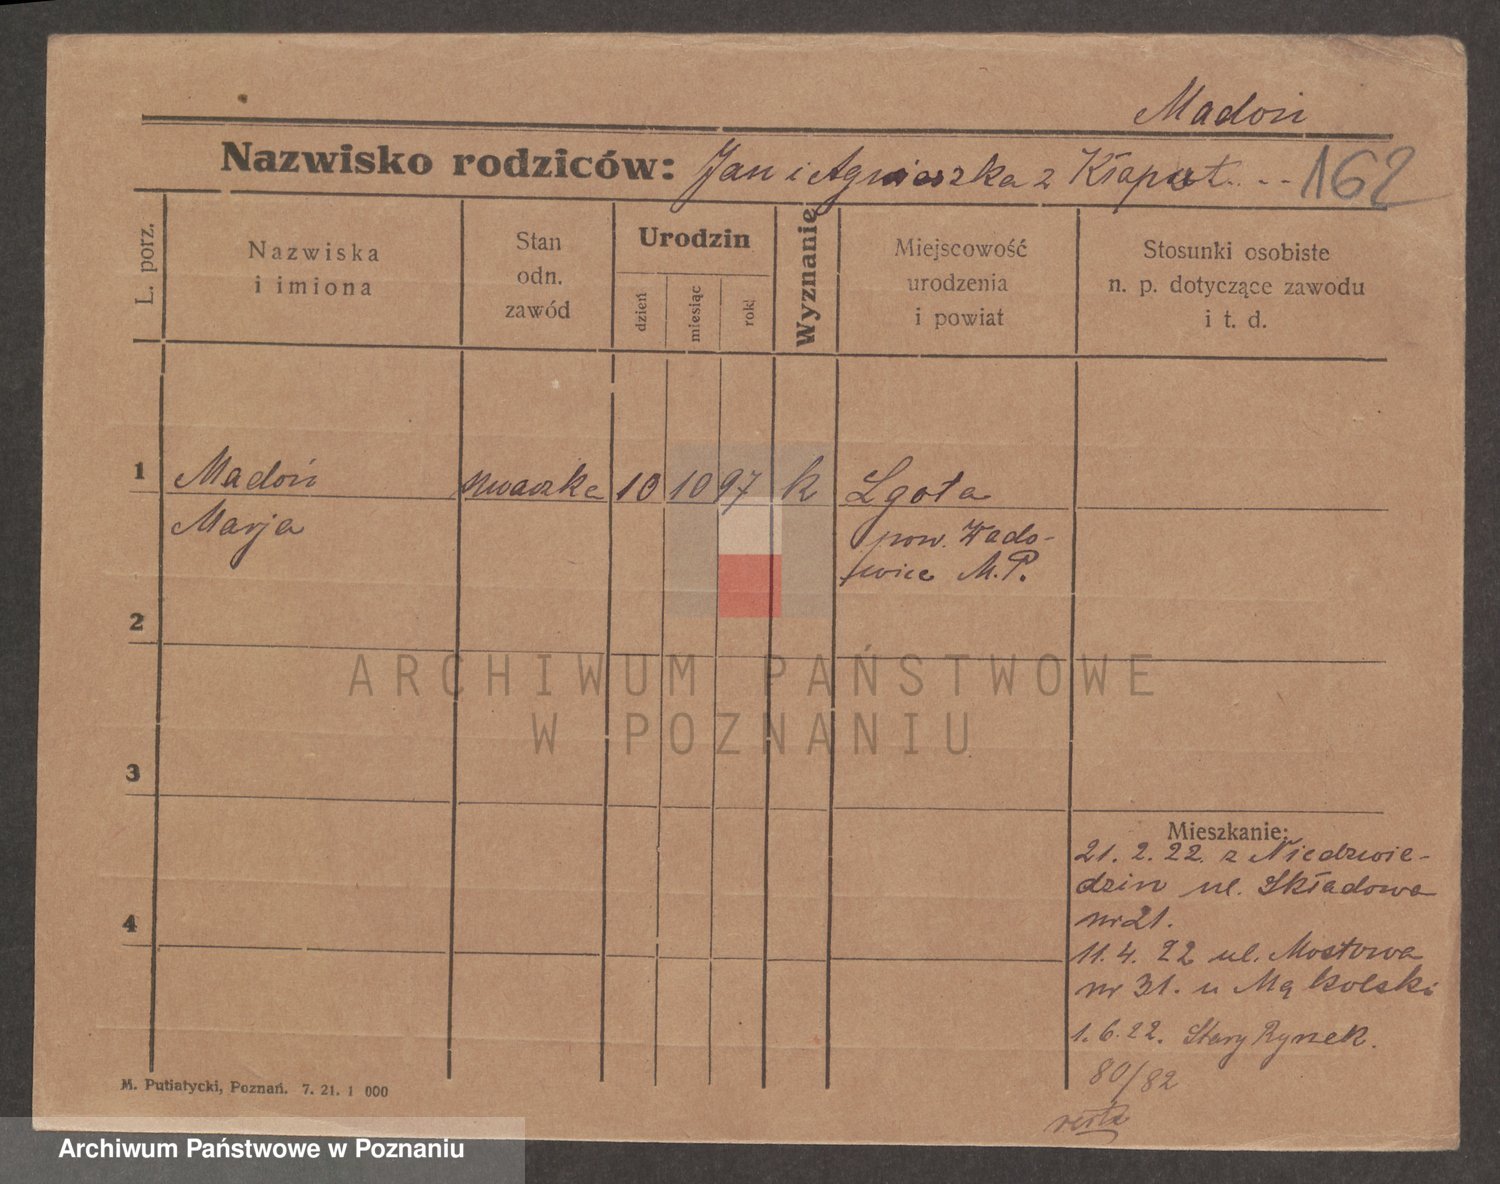 Madoń
Nazwisko rodziców: Jan i Agnieszka z Kłaput... 162
L. porz.
Nazwiska
i imiona
Stan
odn.
zawód
Urodzin
dzień
miesiąc
rok
Wyznanie
Miejscowość
urodzenia
i powiat
Stosunki osobiste
n. p. dotyczące zawodu
i t. d.
1 Madoń szwaczka 10 10 97 k Lgota
Marja pow. Wado-
wice M.P.
2
3
4
ARCHIWUM PAŃSTWOWE
W POZNANIU
Mieszkanie:
21. 2. 22. z Niedzwie-
dzin ul. Składowa
nr 21.
11. 4. 22 ul. Mostowa
nr 31. u Mąkolski
1. 6. 22. Stary Rynek.
80/82
M. Putiatycki, Poznań. 7. 21. 1 000
Archiwum Państwowe w Poznaniu